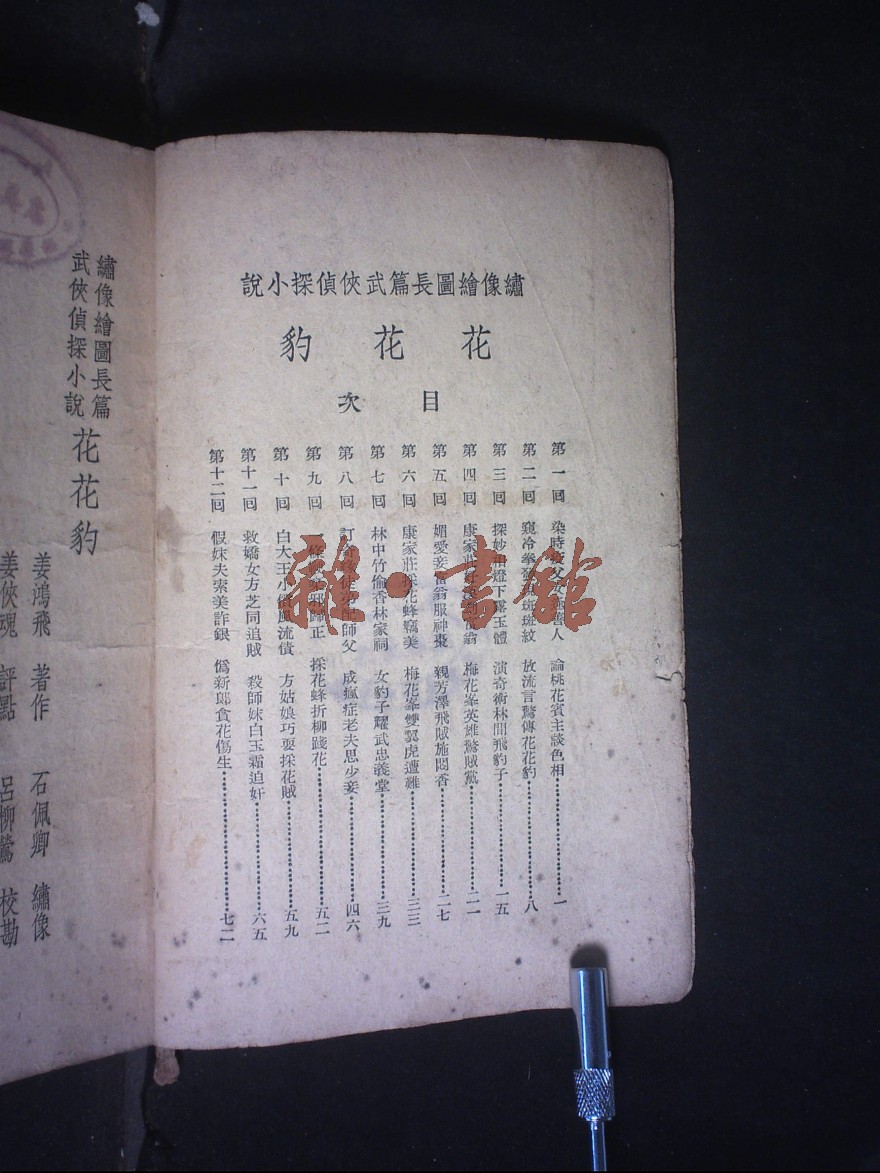 繡像繪圖長篇武俠偵探小說
花花豹
目次
第一回 染時 論桃花賓主談色相 一
第二回 窺冷拳 斑斑紋 放流言驚傳花花豹 八
第三回 探妙 燈下露玉體 演奇術林間飛豹子 一五
第四回 康家莊 翁 梅花峯英雄驚賊黨 二一
第五回 媚愛妾富翁服神棗 親芳澤飛賊施悶香 二七
第六回 康家莊採花蜂竊美 梅花峯雙翼虎遭難 三三
第七回 林中竹偷香林家祠 女豹子耀武忠義堂 三九
第八回 訂 師父 成瘋症老夫思少妾 四六
第九回 歸正 採花蜂折柳踐花 五二
第十回 白大王小償風流債 方姑娘巧耍採花賊 五九
第十一回 救嬌女方芝同追賊 殺師妹白玉霜迫奸 六五
第十二回 假妹夫索美詐銀 偽新郎貪花傷生 七二
雜·書館
繡像繪圖長篇
武俠偵探小說
花花豹
姜鴻飛 著作 石佩卿 繡像
姜俠魂 評點 呂柳鶯 校勘